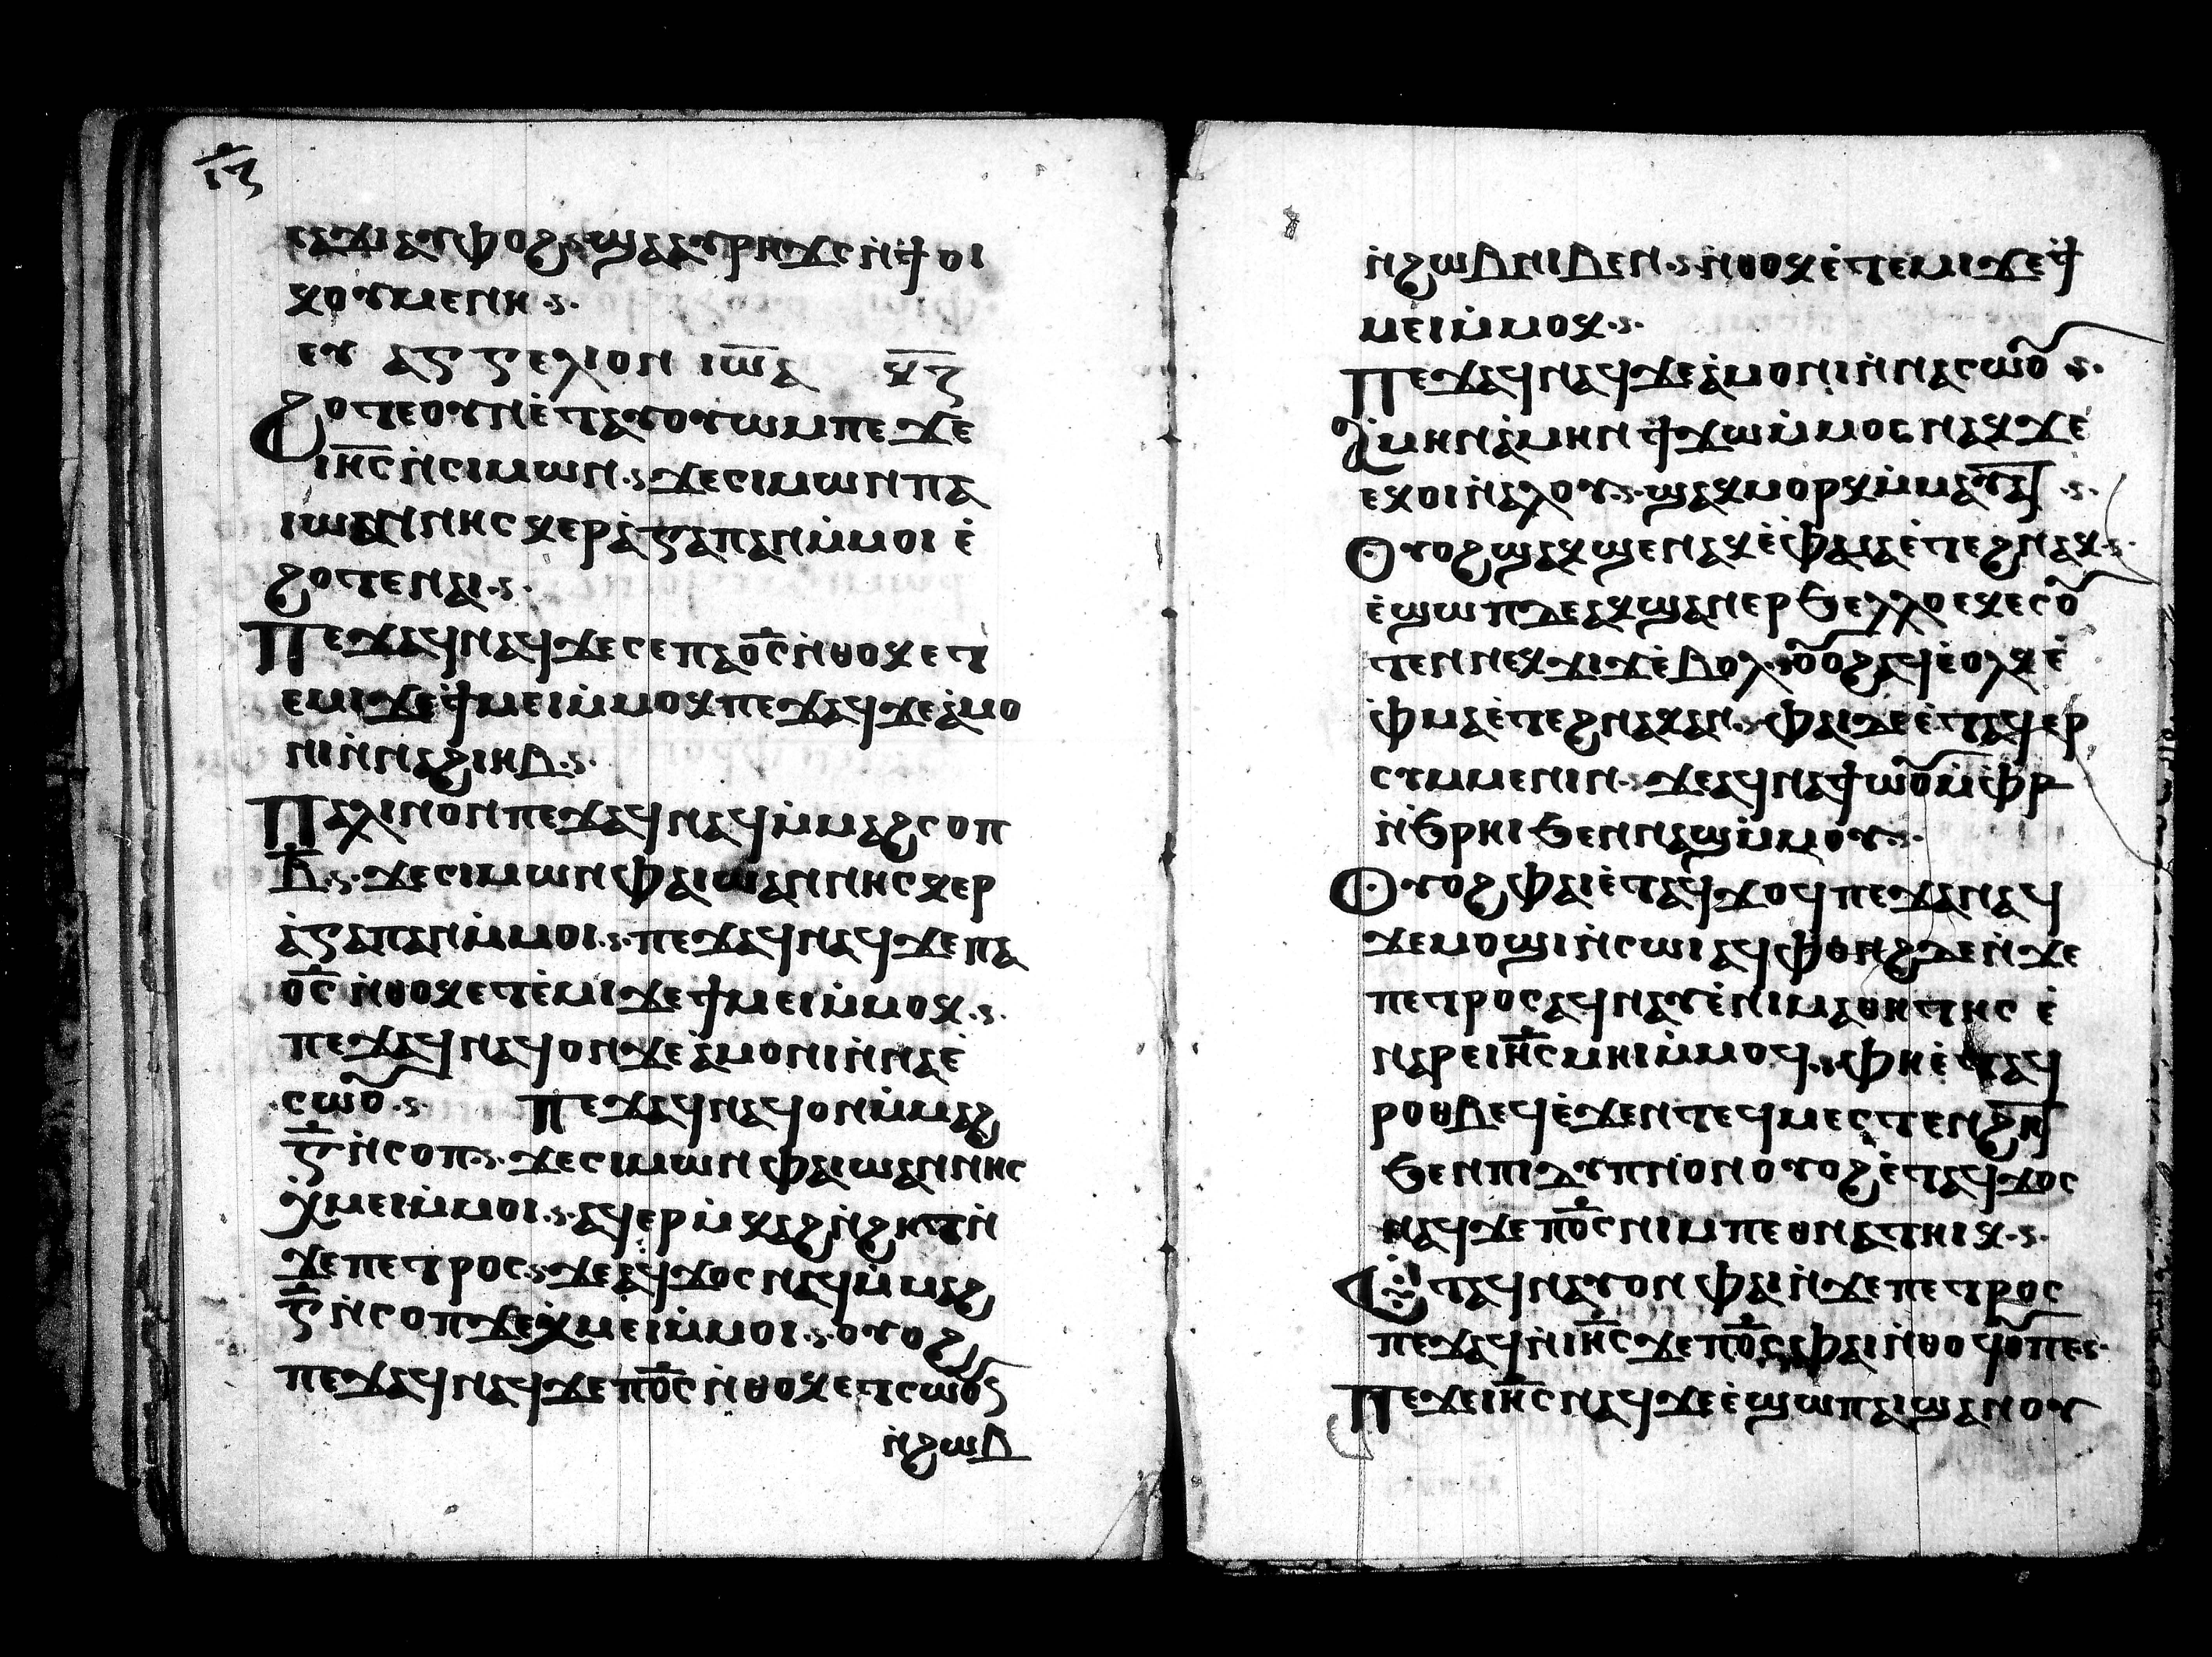 ⲓ̅ⲍ̅
ⲥⲁϫⲓⲁⲩⲫⲟϩ ϣⲁⲁⲩⲣⲏϫⲥ ⲛ̀ϯⲟⲓ
ⲕⲟⲩⲙⲉⲛⲏ·ⲋ·
ⲉⲩ ⲁⲅⲅⲉⲗⲓⲟⲛ ⲓⲱ̅ⲁ ⲕ̅ⲍ̅
ϩⲟⲧⲉⲟⲩⲛⲉ̀ⲧⲁⲩⲟⲩⲱⲙⲡⲉϫⲉ̀
ⲓⲏ̅ⲥ̅ⲛ̀ⲥⲓⲙⲱⲛ·ⲋ·ϫⲉⲥⲓⲙⲱⲛⲡⲁ
ⲓⲱⲁⲛⲛⲏⲥⲕⲉⲣⲁ̀ⲅⲁⲡⲁⲛⲙ̀ⲙⲟⲓ ⲉ̀
ϩⲟⲧⲉⲛⲁⲓ·ⲋ·
ⲡⲉϫⲁϥⲛⲁϥϫⲉⲥⲉⲡⲁⲟ̅ⲥ̅ⲛ̀ⲑⲟⲕⲉⲧ
ⲉⲙⲓϫⲉϯⲙⲉⲓⲙ̀ⲙⲟⲕⲡⲉϫⲁϥϫⲉⲁ̀ⲙⲟ
ⲛⲓⲛ̀ⲛⲁϩⲓⲏⲃ·ⲋ·
ⲡⲁⲗⲓⲛⲟⲛⲡⲉϫⲁϥⲛⲁϥⲙ̀ⲙⲁϩⲥⲟⲡ
ⲃ̅·ⲋ·ϫⲉⲥⲓⲙⲱⲛⲫⲁⲓⲱⲁⲛⲛⲏⲥⲕⲉⲣ
ⲁ̀ⲅⲁⲡⲁⲛⲙ̀ⲙⲟⲓ·ⲋ·ⲡⲉϫⲁϥⲛⲁϥϫⲉⲡⲁ
ⲟ̅ⲥ̅ ⲛ̀ⲑⲟⲕⲉⲧⲉ̀ⲙⲓϫⲉϯⲙⲉⲓⲙ̀ⲙⲟⲕ·ⲋ·
ⲡⲉϫⲁϥⲛⲁϥⲟⲛϫⲉⲁ̀ⲙⲟⲛⲓⲛ̀ⲛⲁⲉ̀
ⲥⲱⲟⲩ·ⲋ· ⲡⲉϫⲁϥⲛⲁϥⲟⲛⲙ̀ⲙⲁϩ
ⲅ̅ⲛ̀ⲥⲟⲡ·ⲋ·ϫⲉⲥⲓⲙⲱⲛ ⲫⲁⲓⲱⲁⲛⲛⲏⲥ
ⲭ̀ⲙⲉⲓⲙ̀ⲙⲟⲓ·ⲋ·ⲁϥⲉⲣⲙ̀ⲕⲁϩⲛ̀ϩⲏⲧⲛ̀
ϫⲉⲡⲉⲧⲣⲟⲥ·ⲋ·ϫⲉⲁϥϫⲟⲥⲛⲁϥⲙ̀ⲙⲁϩ
ⲅ̅ⲛ̀ⲥⲟⲡϫⲉⲭ̀ⲙⲉⲓⲙ̀ⲙⲟⲓ·ⲋ·ⲟⲩⲟϩ
ⲡⲉϫⲁϥⲛⲁϥϫⲉⲡⲟ̅ⲥ̅ⲛ̀ⲑⲟⲕⲉⲧⲥⲱⲟⲩ
ⲛ̀ϩⲱⲃ
ⲛ̀ϩⲱⲃⲛⲓⲃⲉⲛ·ⲋ·ⲛ̀ⲑⲟⲕⲉ̀ⲧⲉⲙⲓϫⲉϯ
ⲙⲉⲓⲙ̀ⲙⲟⲕ·ⲋ·
ⲡⲉϫⲁϥⲛⲁϥϫⲉⲁ̀ⲙⲟⲛⲓⲛ̀ⲛⲁⲥⲱⲟⲩ·ⲋ·
ⲁⲙⲏⲛⲁ̀ⲙⲏⲛϯϫⲱⲙ̀ⲙⲟⲥⲛⲁⲕϫⲉ
ⲉⲕⲟⲓⲛ̀ⲁⲗⲟⲩ·ⲋ·ϣⲁⲕⲙⲟⲣⲕⲙ̀ⲙⲁⲩⲁⲧ·ⲋ·
ⲟⲩⲟϩϣⲁⲕϣⲉⲛⲁⲕⲉ̀ⲫ̀ⲙⲁⲉ̀ⲧⲉϩⲛⲁⲕ·ⲋ·
ⲉ̀ϣⲱⲡⲇⲉⲁⲕϣⲁⲛⲉⲣϧⲉⲗⲗⲟⲉⲕⲉⲥⲟⲩ
ⲧⲉⲛⲛⲉⲕϫⲓϫⲉ̀ⲃⲟⲗ·ⲟⲩⲟϩⲁϥⲉ̀ⲟⲗⲕⲉ̀
ⲫ̀ⲙⲁⲉ̀ⲧⲉϩⲛⲁⲕⲁⲛ·ⲋ·ⲫⲁⲓⲇⲉⲉ̀ⲧⲁϥⲉⲣ
ⲥⲩⲙⲙⲉⲛⲓⲛ·ⲋ·ϫⲉⲁϥⲛⲁϯⲱⲟⲩⲙ̀ⲫϯ
ⲛ̀ϧⲣⲏⲓϧⲉⲛⲛⲁϣⲙ̀ⲙⲟⲩ·ⲋ·
ⲟⲩⲟϩⲫⲁⲓⲉ̀ⲧⲁϥϫⲟϥⲡⲉϫⲁⲛⲁϥ
ϫⲉⲙⲟϣⲓⲛ̀ⲥⲱⲓⲁϥⲫⲟⲛϩⲇⲉⲛ̀ϫⲉ
ⲡⲉⲧⲣⲟⲥⲁϥⲛⲁⲩⲉ̀ⲛⲓⲙⲁⲑⲏⲧⲏⲥ ⲉ̀
ⲛⲁⲣⲉⲓⲏ̅ⲥ̅ⲙⲏⲓⲙ̀ⲙⲟϥ·ⲋ·ⲫⲏⲉ̀ⲧⲁϥ
ⲣⲟⲑⲃⲉϥⲉ̀ϫⲉⲛⲧⲉϥⲙⲉⲥⲧⲉⲛϩⲏⲧ
ϧⲉⲛⲡⲓⲇⲩⲡⲛⲟⲛⲟⲩⲟϩⲉ̀ⲧⲁϥϫⲟⲥ
ⲛⲁϥϫⲉⲡⲟ̅ⲥ̅ⲛⲓⲙⲡⲉⲑⲛⲁⲧⲏⲓⲕ·ⲋ·
ⲉⲧⲁϥⲛⲁⲩⲟⲛ ⲫⲁⲓⲛ̀ϫⲉⲡⲉⲧⲣⲟⲥ
ⲡⲉϫⲁϥⲛ̀ⲓⲏ̅ⲥ̅ϫⲉⲡⲟ̅ⲥ̅ ⲫⲁⲓⲛ̀ⲑⲟϥⲟⲩⲡⲉⲋ·
ⲡⲉϫⲉⲓⲏ̅ⲥ̅ⲛⲁϥϫⲉⲉ̀ϣⲱⲡⲁⲓϣⲁⲛⲟⲩ